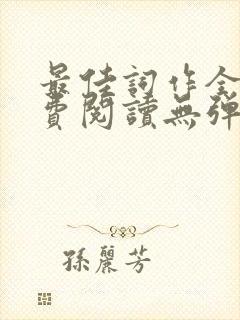 最佳詞作全
費閱讀無彈
孫麗芳